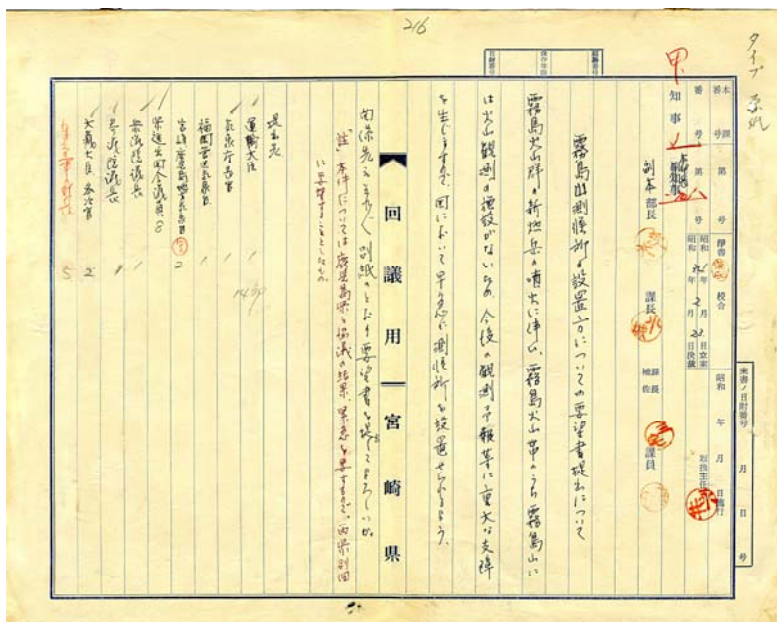 216
タイプ 原紙
甲
本課
番号
第 号
番号
第 号
浄書
校合
昭和 年 月 日立案
昭和 年 月 日決裁
昭和 年 月 日施行
来書ノ日附番号
月 日 号
知事
副本
部長
課長
課長補佐
課員
霧島山測候所の設置方についての要望書提出について
霧島火山群の新燃岳の噴火に伴い、霧島火山帯のうち霧島山に
は火山観測の施設がないため、今後の観測予報等に重大な支障
を生じますので、国において早急に測候所を設置せられるよう、
関係先に対し別紙のとおり要望書を提出してよろしいか。
註 本件については鹿児島県と協議の結果、緊急を要するので、両県別個
に要望することとしたもの。
回議用 宮崎県
提出先
運輸大臣 1
気象庁長官 1
福岡管区気象台 1
宮崎、鹿児島地方気象台 2
県選出国会議員 8
衆議院議長 1
参議院議長 1
大蔵大臣 2
5